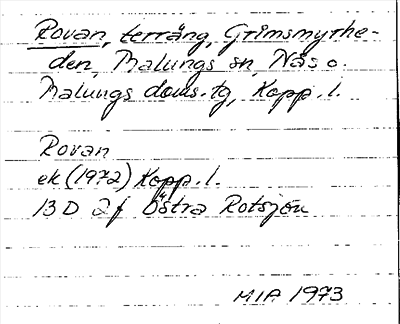 Rovan, terräng, Grimsmyrhe-
den, Malungs sn, Näs o.
Malungs doms.tg, Kopp.l.
Rovan
ek (1972) Kopp.l.
13 D 2f Östra Rotsjön
MIA 1973